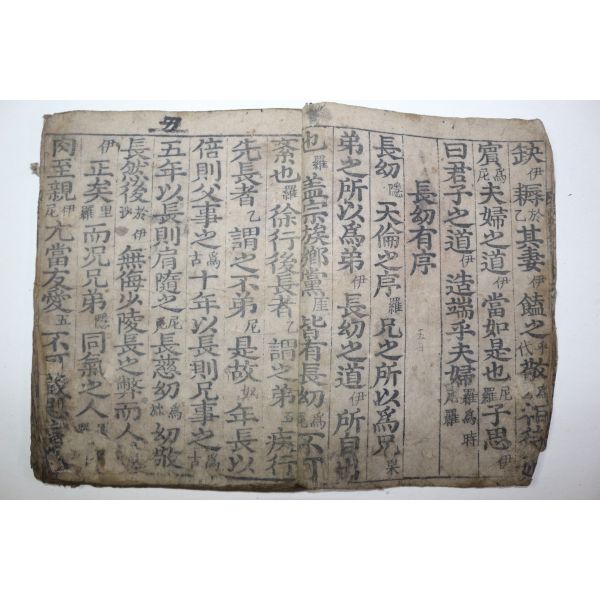 缺伊耨於乙其妻伊饁之
賓爲尼夫婦之道伊當如是也尼羅子思伊
曰君子之道伊造端乎夫婦
長幼有序
長幼隱天倫之序羅兄之所以爲兄果
弟之所以爲弟伊長幼之道伊所自
也羅蓋宗族鄕黨厓皆有長幼不可
紊也羅徐行後長者乙謂之弟五疾行
先長者乙謂之不弟尼是故奴年長以
倍則父事之古十年以長則兄事之古
五年以長則肩隨之尼長慈幼爲幼敬
長然後無侮少陵長之弊而人
伊正矣里羅而況兄弟隱同氣之人
肉至親伊尼尤當友愛五不可